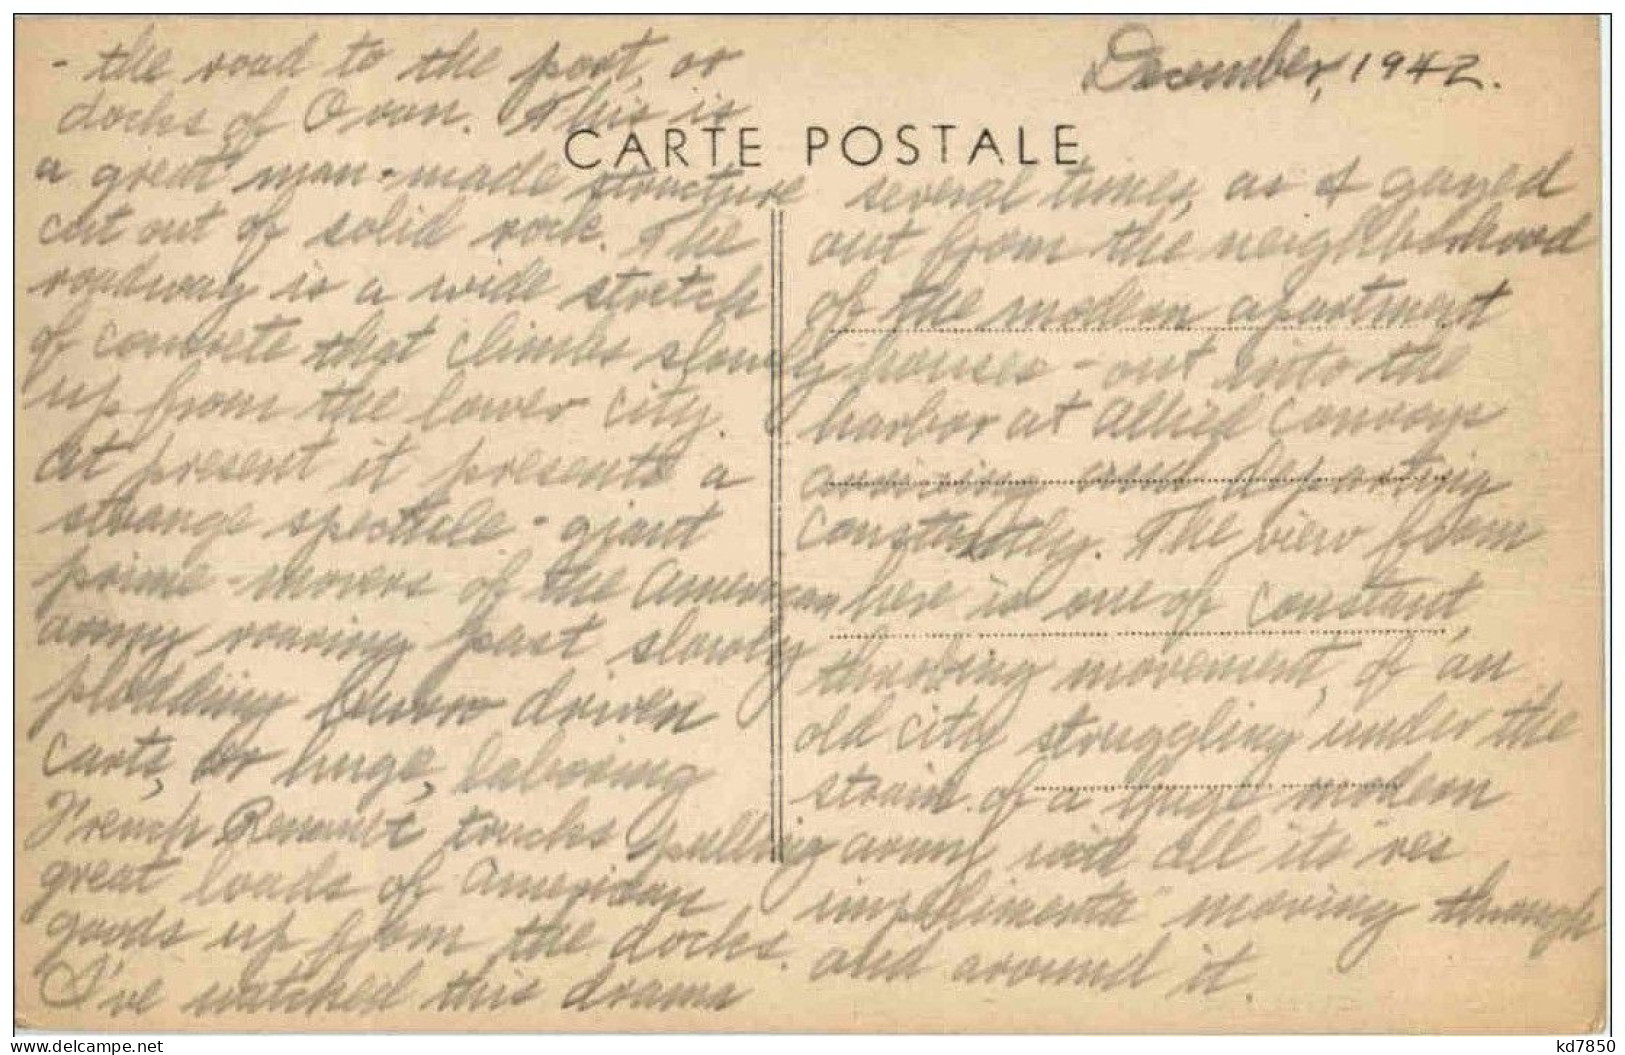 December, 1942.
CARTE POSTALE
- the road to the port, or
docks of Oran. This is
a great man-made structure
cut out of solid rock. The
roadway is a wide stretch
of concrete that climbs slowly
up from the lower city.
At present it presents a
strange spectacle - giant
prime-movers of the American
army roaring past slowly
plodding burro driven
carts, or huge, laboring
French Renault trucks pulling
great loads of American
goods up from the docks.
I've watched this drama
several times, as I gazed
out from the neighborhood
of the modern apartment
houses - out into the
harbor at Allied convoys
arriving and departing
constantly. The view from
here is one of constant,
throbing movement, of an
old city struggling under the
strain of a huge modern
army with all its "res
impedimenta" moving through
and around it.
www.delcampe.net
kd7850